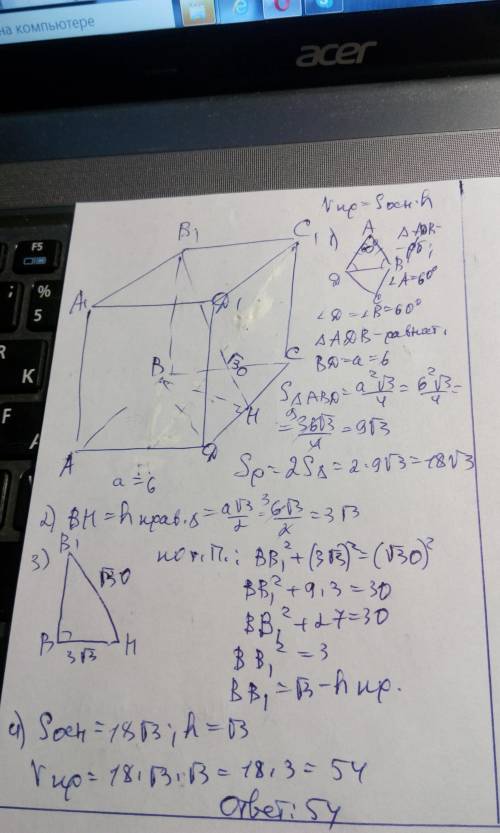 на компьютере
acer
F5
%
5
R
K
F
Vпр = Sосн·h
B₁
C₁
A₁
D₁
B
C
√30
H
A
D
a = 6
1)
A
B
D
C
∆ADB -
- рб,
∠A = 60°
∠D = ∠B = 60°
∆ADB - равнат.
BD = a = 6
S∆ABD = a²√3/4 = 6²√3/4 =
= 36√3/4 = 9√3
Sр = 2S∆ = 2·9√3 = 18√3
2) BH = h прав.∆ = a√3/2 = 6√3/2 = 3√3
3)
B₁
√30
B
3√3
H
по т.П.: BB₁² + (3√3)² = (√30)²
BB₁² + 9·3 = 30
BB₁² + 27 = 30
BB₁² = 3
BB₁ = √3 - h пр.
4) Sосн = 18√3; h = √3
Vпр = 18·√3·√3 = 18·3 = 54
Ответ: 54